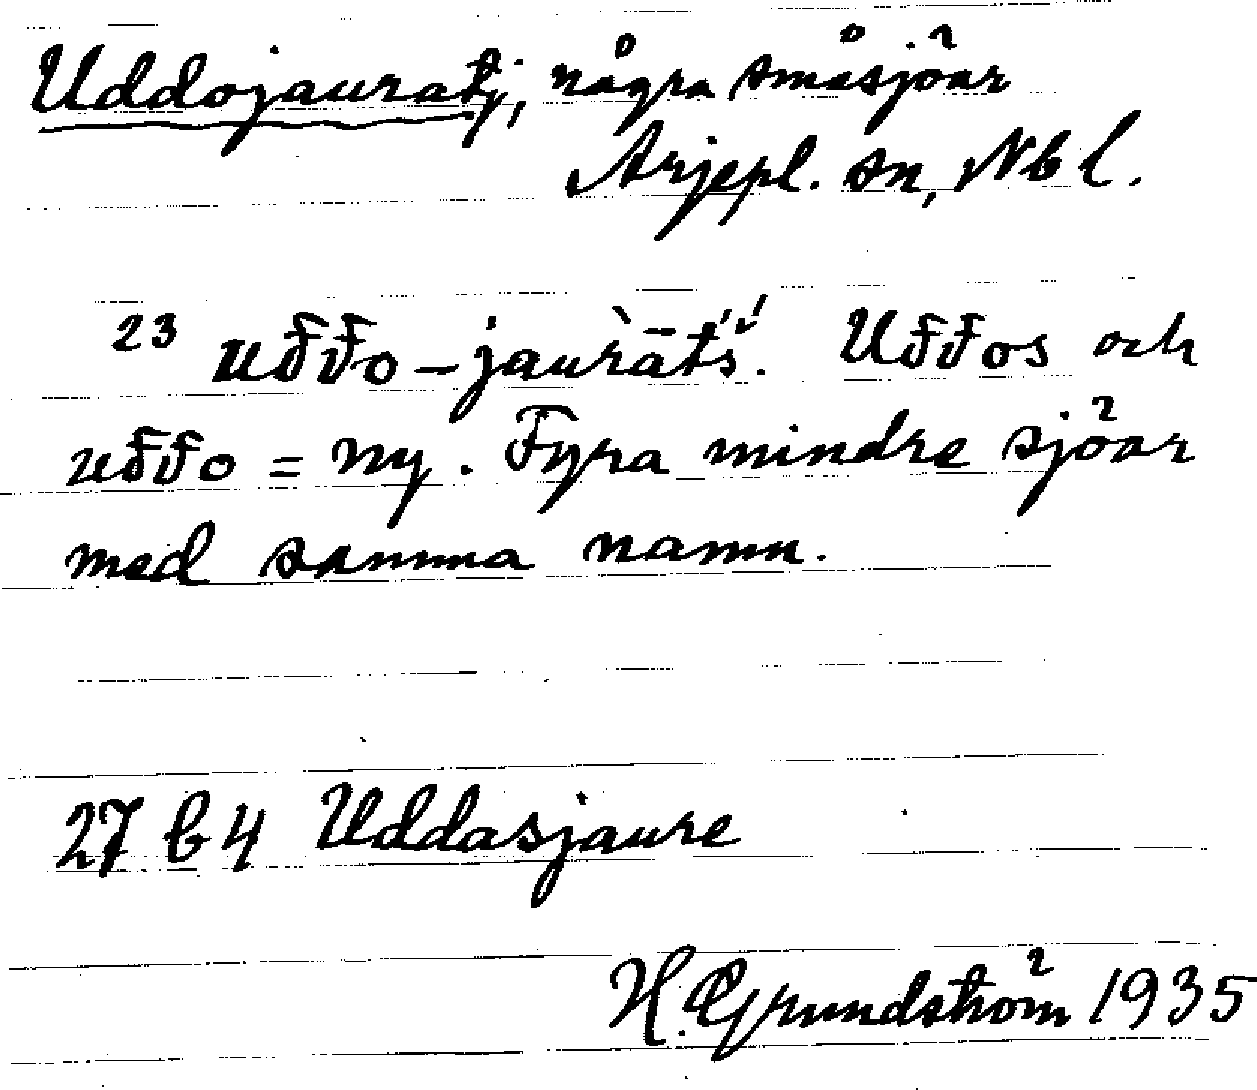 Uddojauratj, några småsjöar
Arjepl. sn, Nbl.
23 uđđo-jaùrātš́́. Uđđos och
uđđo = ny. Fyra mindre sjöar
med samma namn.
27 b 4 Uddasjaure
H. Grundström 1935